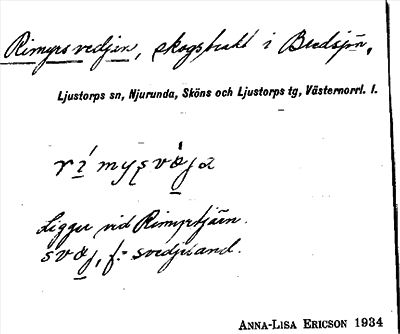 Rimyrsvedjan, skogstrakt i Bredsjön.
Ljustorps sn, Njurunda, Sköns och Ljustorps tg, Västernorrl. l.
Ligger vid Rimyrtjärn.
f. = svedjeland.
ANNA-LISA ERICSON 1934